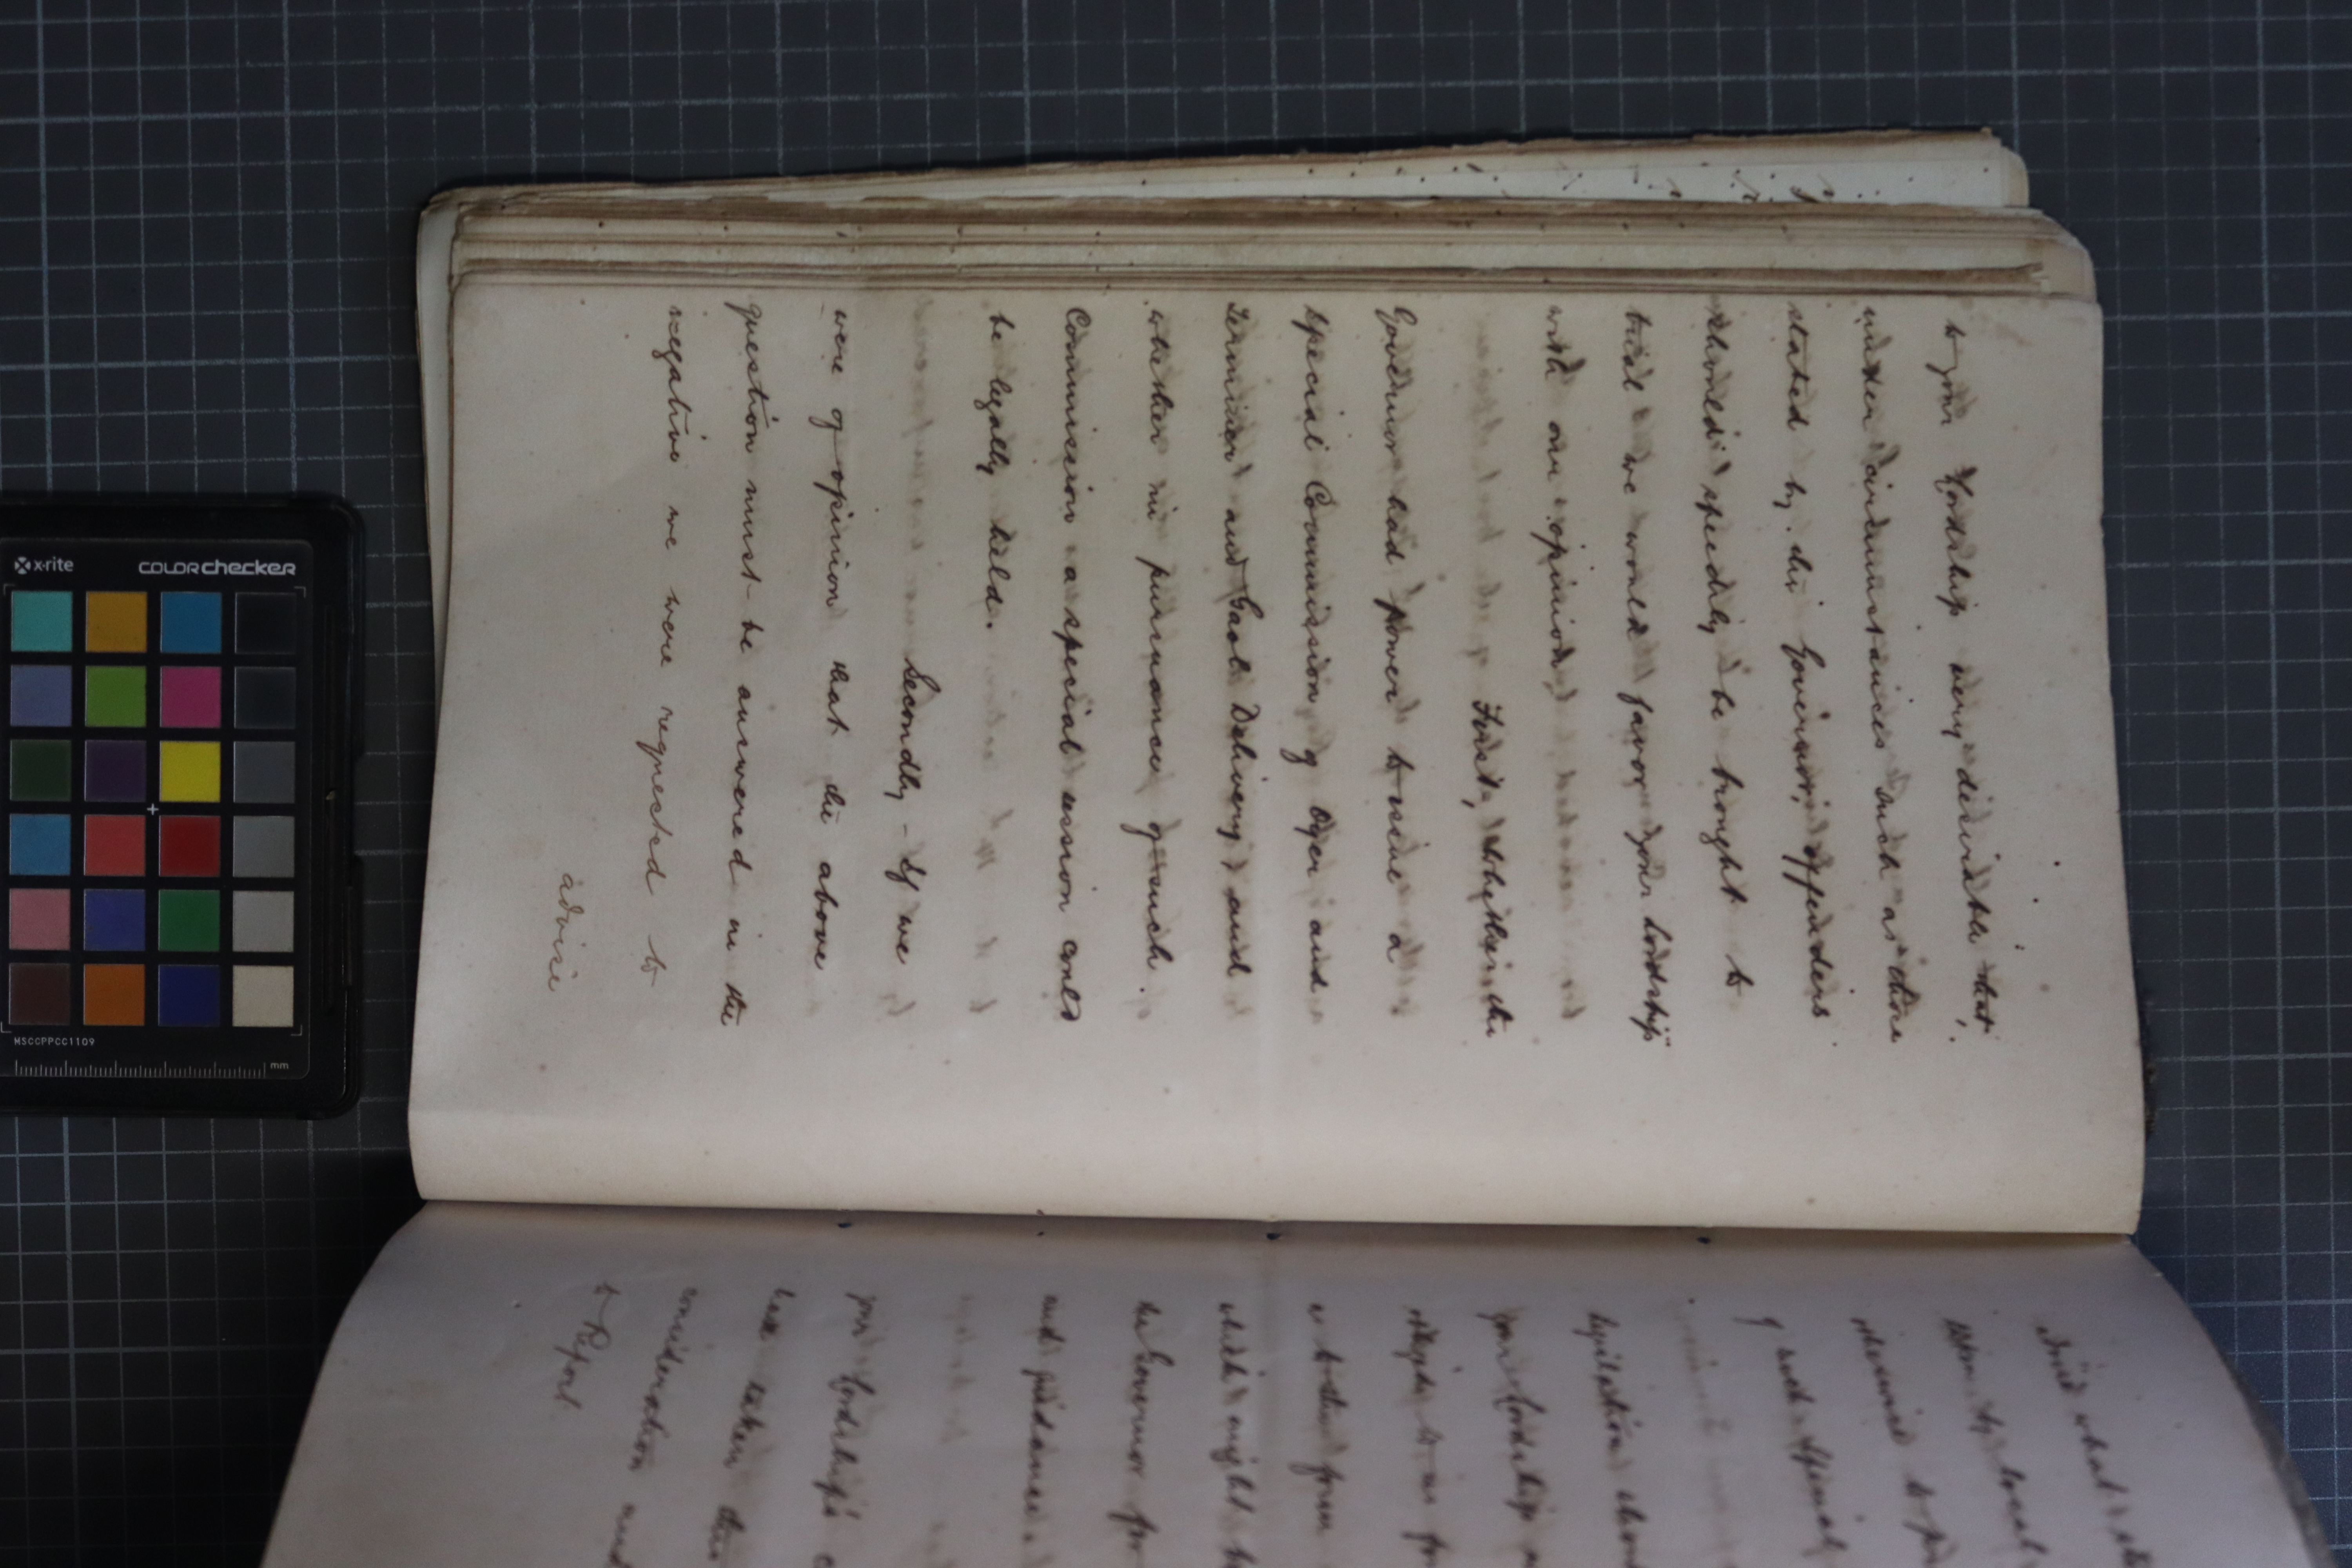 to your Lordship very desirable that,
under circumstances such as those
stated by the Governor, offenders
should speedily be brought to
trial we would favor your Lordship
with our opinion,
First, Whether the
Governor had power to issue a
Special Commission of Oyer and
Terminer and Gaol Delivery and
whether in pursuance of such
Commission a special session could
be legally held.
Secondly - If we
were of opinion that the above
question must be answered in the
negative we were requested to
advise
what
by local
to
of such Special
legislation
your Lordship
to us
as to the form
which might be
the Governor for
and guidance
your Lordship's
have taken the
consideration and
to Report
x-rite
colorchecker
MSCCPPCC1109
mm